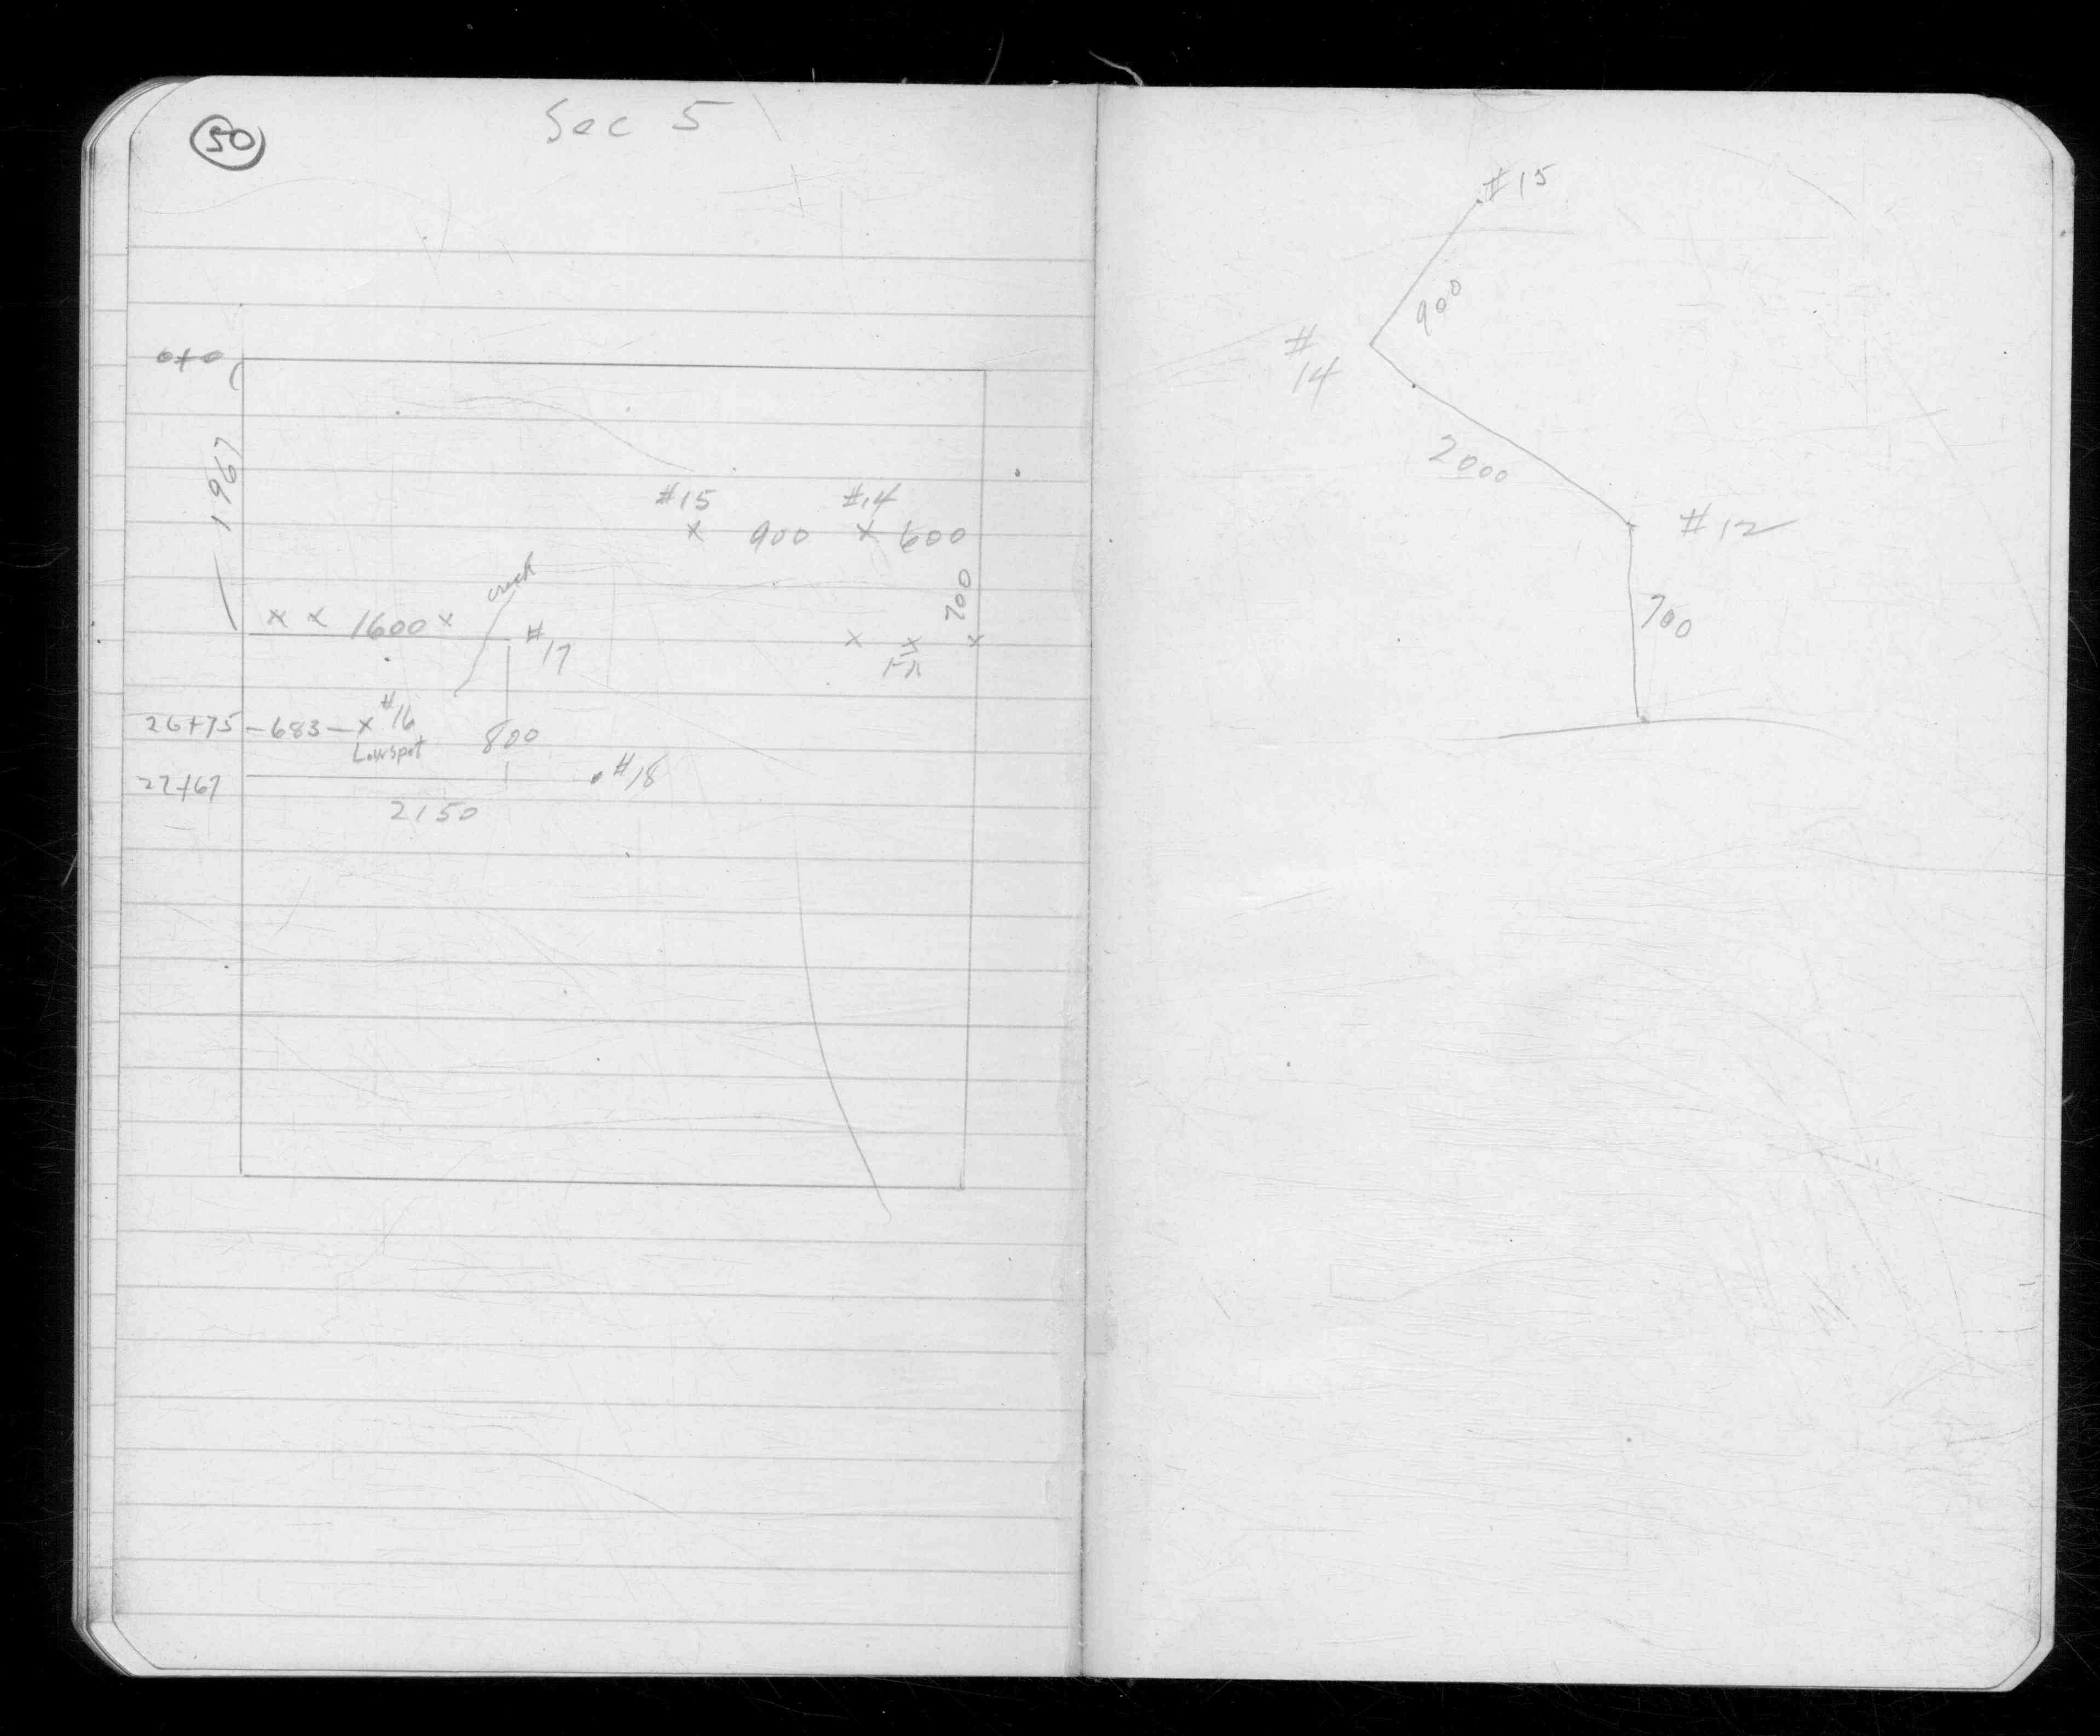 50
Sec 5
0+0
1967
#15 #14
x 900 x 600
700
creek
x x 1600 x #17
x x x
26+75 - 683 - x #16
Lowspot
800
27+67 #18
2150
#15
900
#14
2000
#12
700